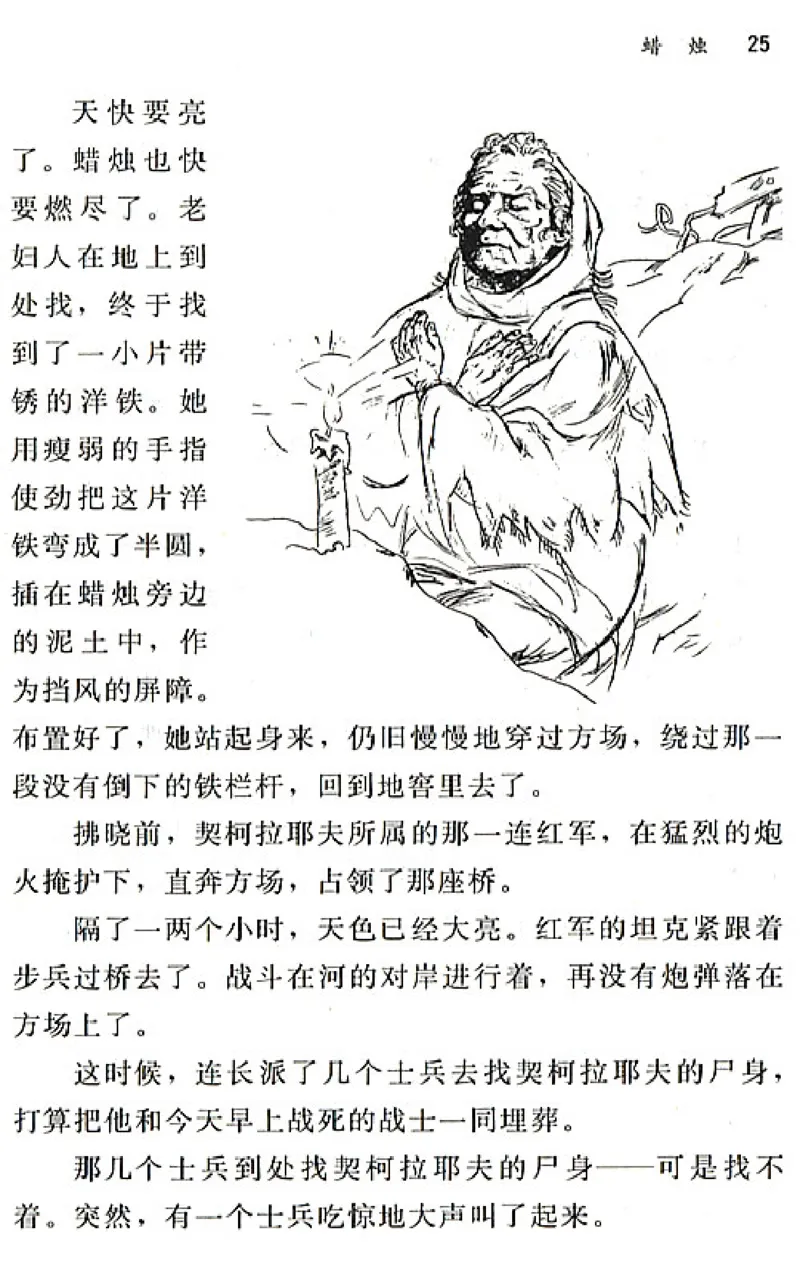 蜡 烛 25
天快要亮
了。蜡烛也快
要燃尽了。老
妇人在地上到
处找，终于找
到了一小片带
锈的洋铁。她
用瘦弱的手指
使劲把这片洋
铁弯成了半圆，
插在蜡烛旁边
的泥土中，作
为挡风的屏障。
布置好了，她站起身来，仍旧慢慢地穿过方场，绕过那一
段没有倒下的铁栏杆，回到地窖里去了。
拂晓前，契柯拉耶夫所属的那一连红军，在猛烈的炮
火掩护下，直奔方场，占领了那座桥。
隔了一两个小时，天色已经大亮。红军的坦克紧跟着
步兵过桥去了。战斗在河的对岸进行着，再没有炮弹落在
方场上了。
这时候，连长派了几个士兵去找契柯拉耶夫的尸身，
打算把他和今天早上战死的战士一同埋葬。
那几个士兵到处找契柯拉耶夫的尸身——可是找不
着。突然，有一个士兵吃惊地大声叫了起来。